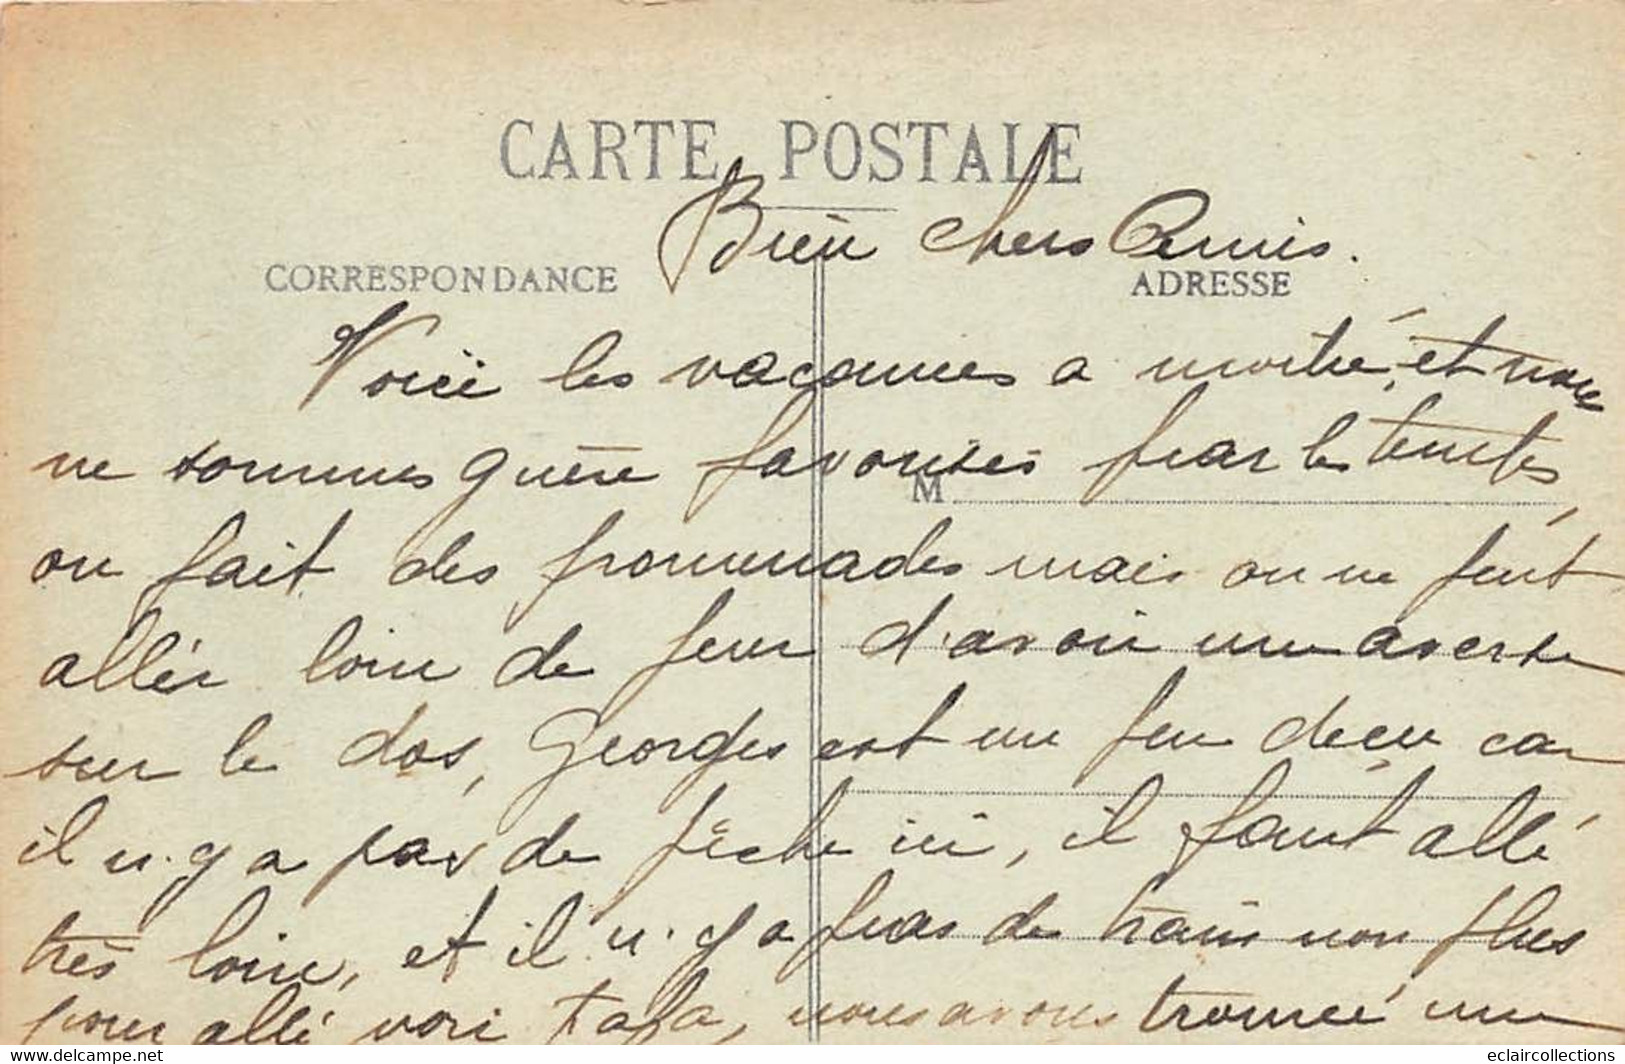 CARTE POSTALE
Bien chers Amis.
CORRESPONDANCE
ADRESSE
Voici les vacances a moitié, et nous
ne sommes guère favorisés par les temps,
M
on fait des promenades mais on ne peut
allér loin de peur d'avoir une averse
sur le dos, Georges est un peu deçu car
il n'y a pas de pêche ici, il faut allé
très loin, et il n'y a pas de train non plus
pour allé voir Papa, nous avons trouvé un
eclaircollections